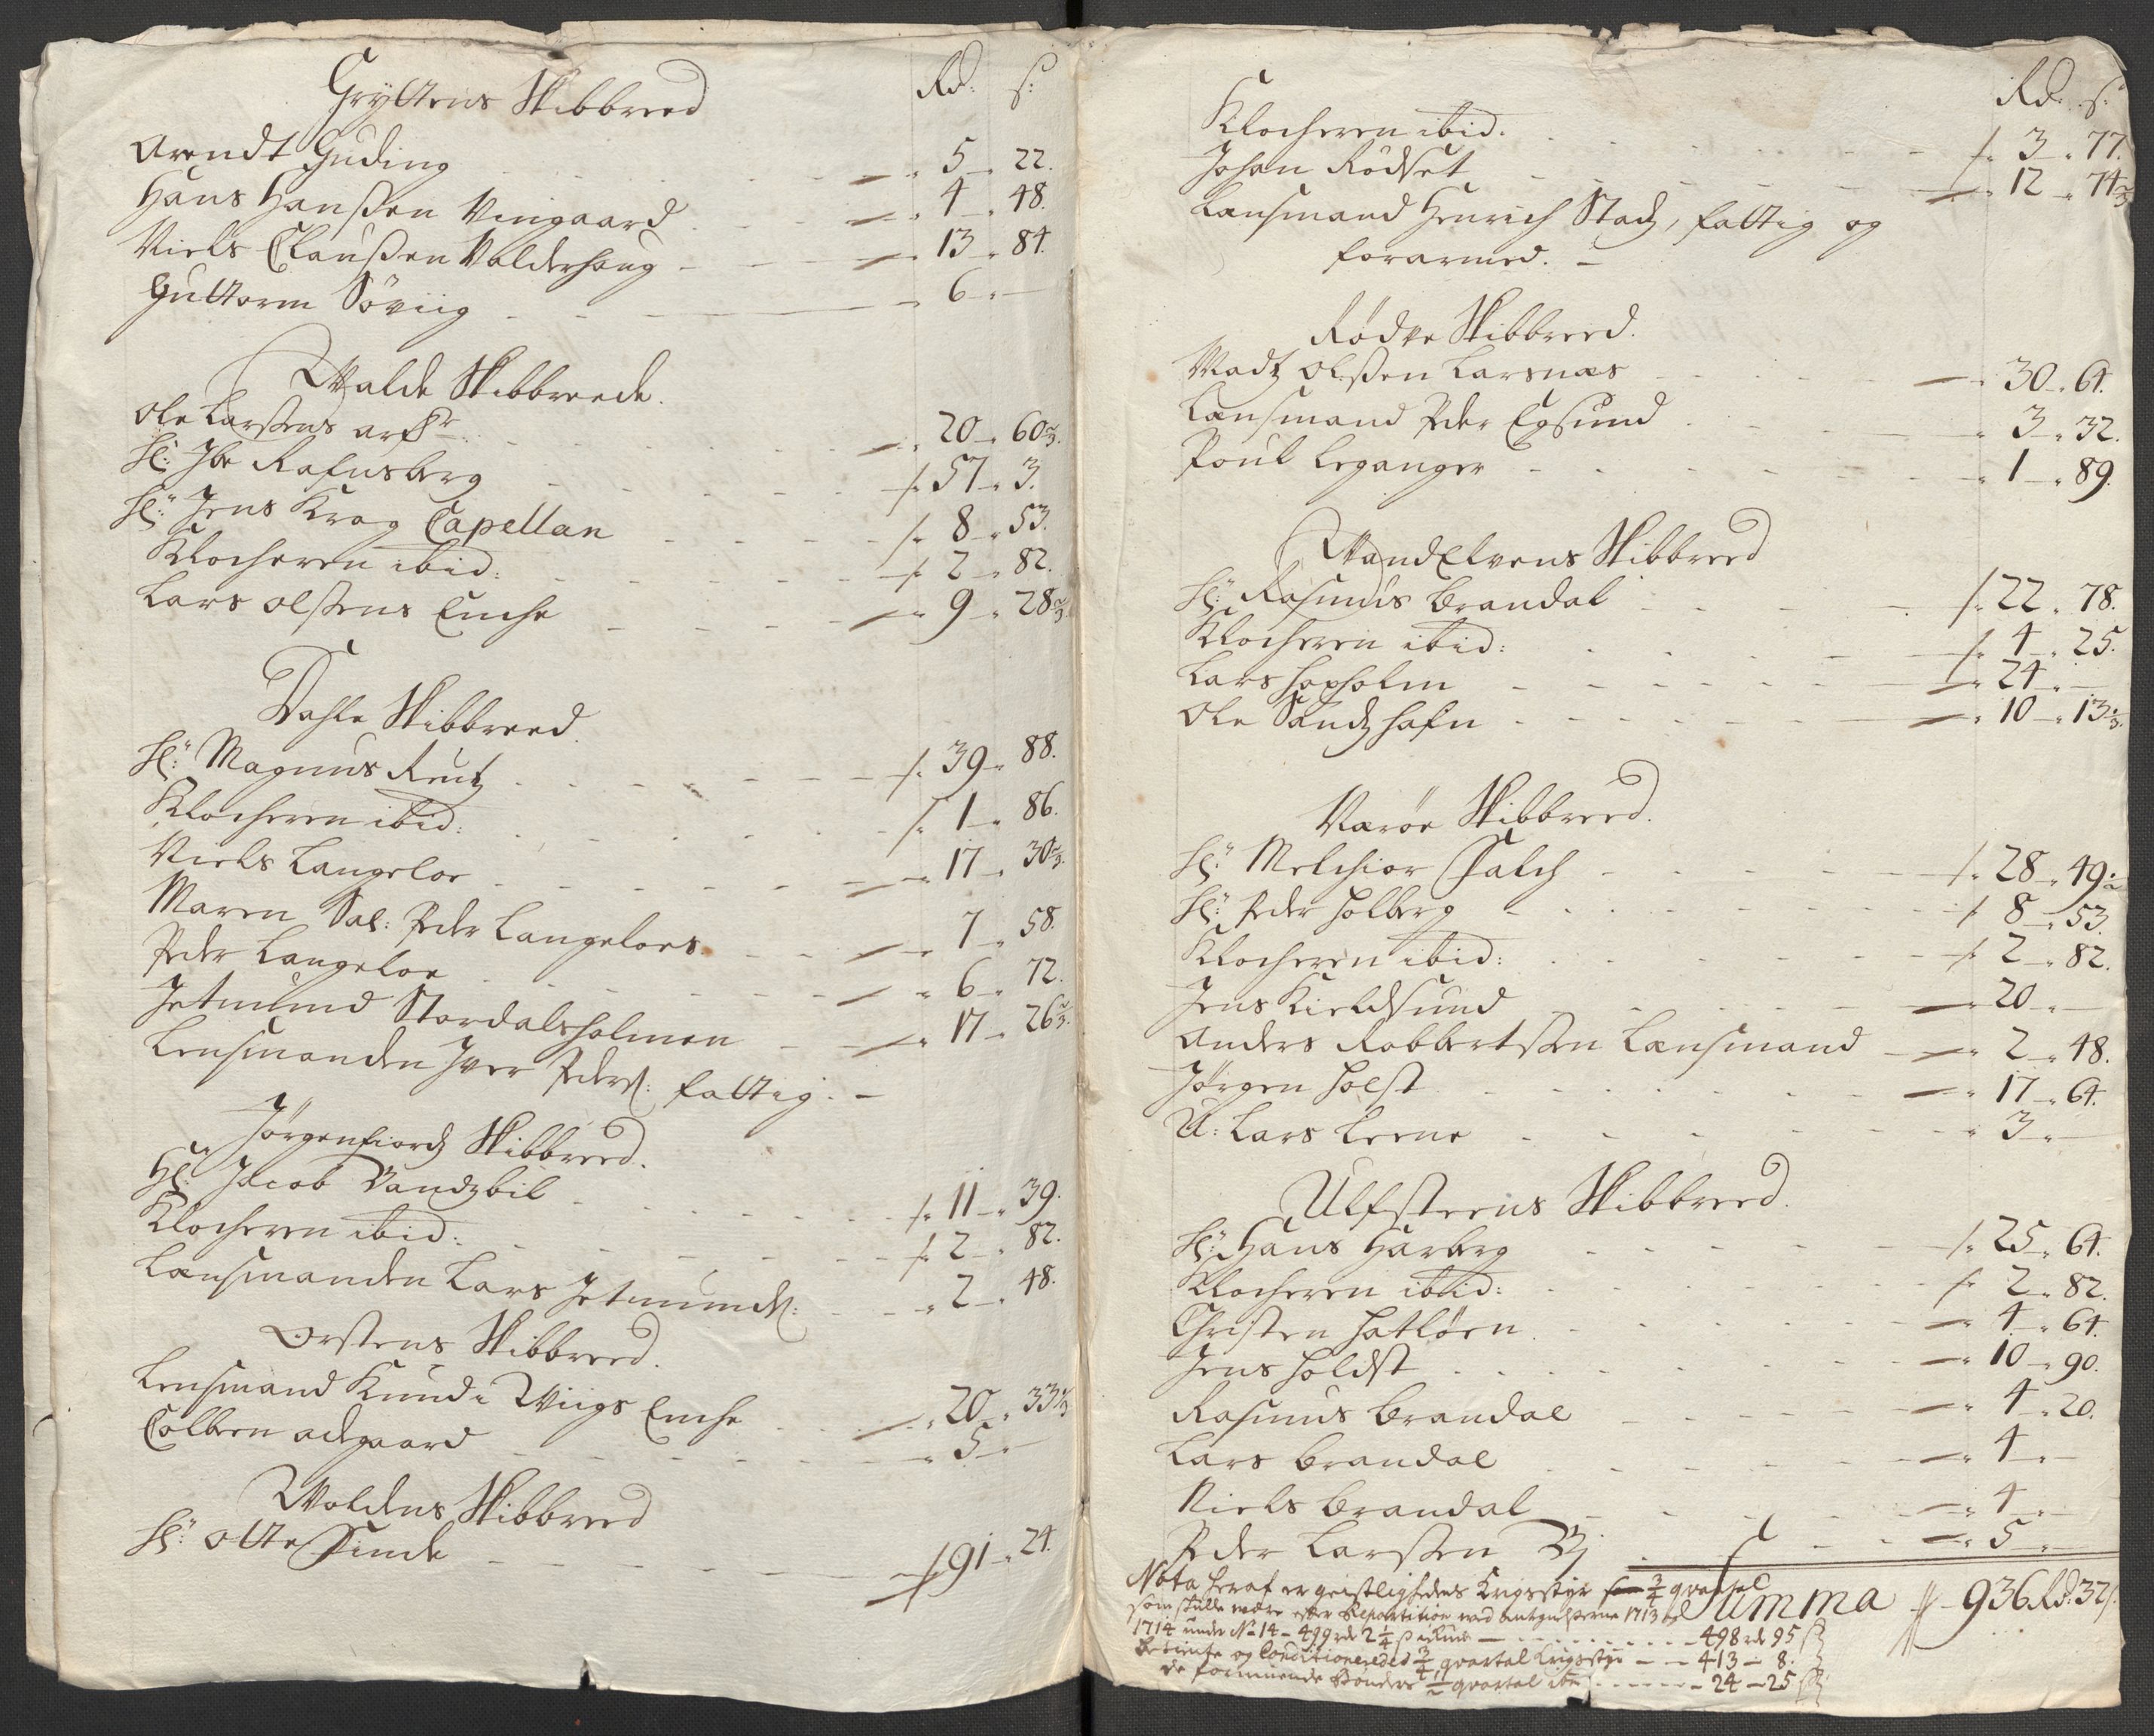 Gryttens Skibbreed Rd: s:
Arendt Guding 5 - 22.
Hans Hanßen Viingaard 4 - 48.
Niels Claußen Valderhoug 13 - 84.
Guttorm Söviig 6 -
Walde Skibbreede.
Ole Larßens arfr 20 - 60 2/3.
Hr: Jbr Rafnsberg 57 - 3.
Hr: Jens Krog Capellan 8 - 53.
Klocheren ibid: 2 - 82.
Lars Olßens Enche 9 - 28 2/3.
Dahls Skibbreed.
Hr: Magnus Reutz 39 - 88.
Klocheren ibid: 1 - 86.
Niels Langeloe 17 - 30 2/3.
Maren Sal: Peder Langeloes 7 - 58.
Peder Langeloe 6 - 72.
Jetmund Stordalsholmen 17 - 26 2/3.
Lensmanden Iver Peders: fattig. -
Jörgenfiords Skibbreed.
Hr: Jacob Dandzbil 11 - 39.
Klocheren ibid: 2 - 82.
Lænsmanden Lars Jetmunds: 2 - 48.
Orstens Skibbreed.
Lensmand Knud Wiigs Enche 20 - 33 1/3
Colbeen Aasgaard 5 -
Woldens Skibbreed
Hr: Otte Finde 91 - 24.
Rd: s:
Klocheren ibid: 3 - 77.
Johan Rödset 12 - 74 2/3
Lænsmand Henrich Stad, fattig og
forarmed. -
Rödve Skibbreed.
Madz Olßen Larsnæs 30 - 64.
Lænsmand Peder Egsund 3 - 32.
Poul Leganger 1 - 89.
WandElvens Skibbreed
Hr: Rasmus Brandal 22 - 78.
Klocheren ibid: 4 - 25.
Lars Hopholm 24 -
Ole Sandzhafn 10 - 13 1/3.
Nærøe Skibbreed.
Hr: Melchior Falch 28 - 49 1/2
Hr: Peder Holberg 8 - 53.
Klocheren ibid: 2 - 82.
Jens Kieldsund 20 -
Anders Robbertßen Lænsmand 2 - 48.
Jörgen Holst 17 - 64.
U: Lars Leene 3 -
Ulfsteens Skibbreed.
Hr: Hans Harberg 25 - 64.
Klocheren ibid: 2 - 82.
Christen Hatlöen 4 - 64.
Jens Holdst 10 - 90.
Rasmus Brandal 4 - 20.
Lars Brandal 4 -
Niels Brandal 4 -
Peder Larßen 5 -
Summa 936 Rd: 32 s
Nota heraf er geistlighedens Krigsstyr 3/4 qvartal
som skulle være efter Repartition ved 1713 og
1714 under No 14 - 499 rd 2 1/4 s - 498 rd 95 s
Betiente og Conditionerede 3/4 qvartal Krigsstyr - 413 - 8.
de formuende Bönders 1/2 qvartal - 24 - 25 s